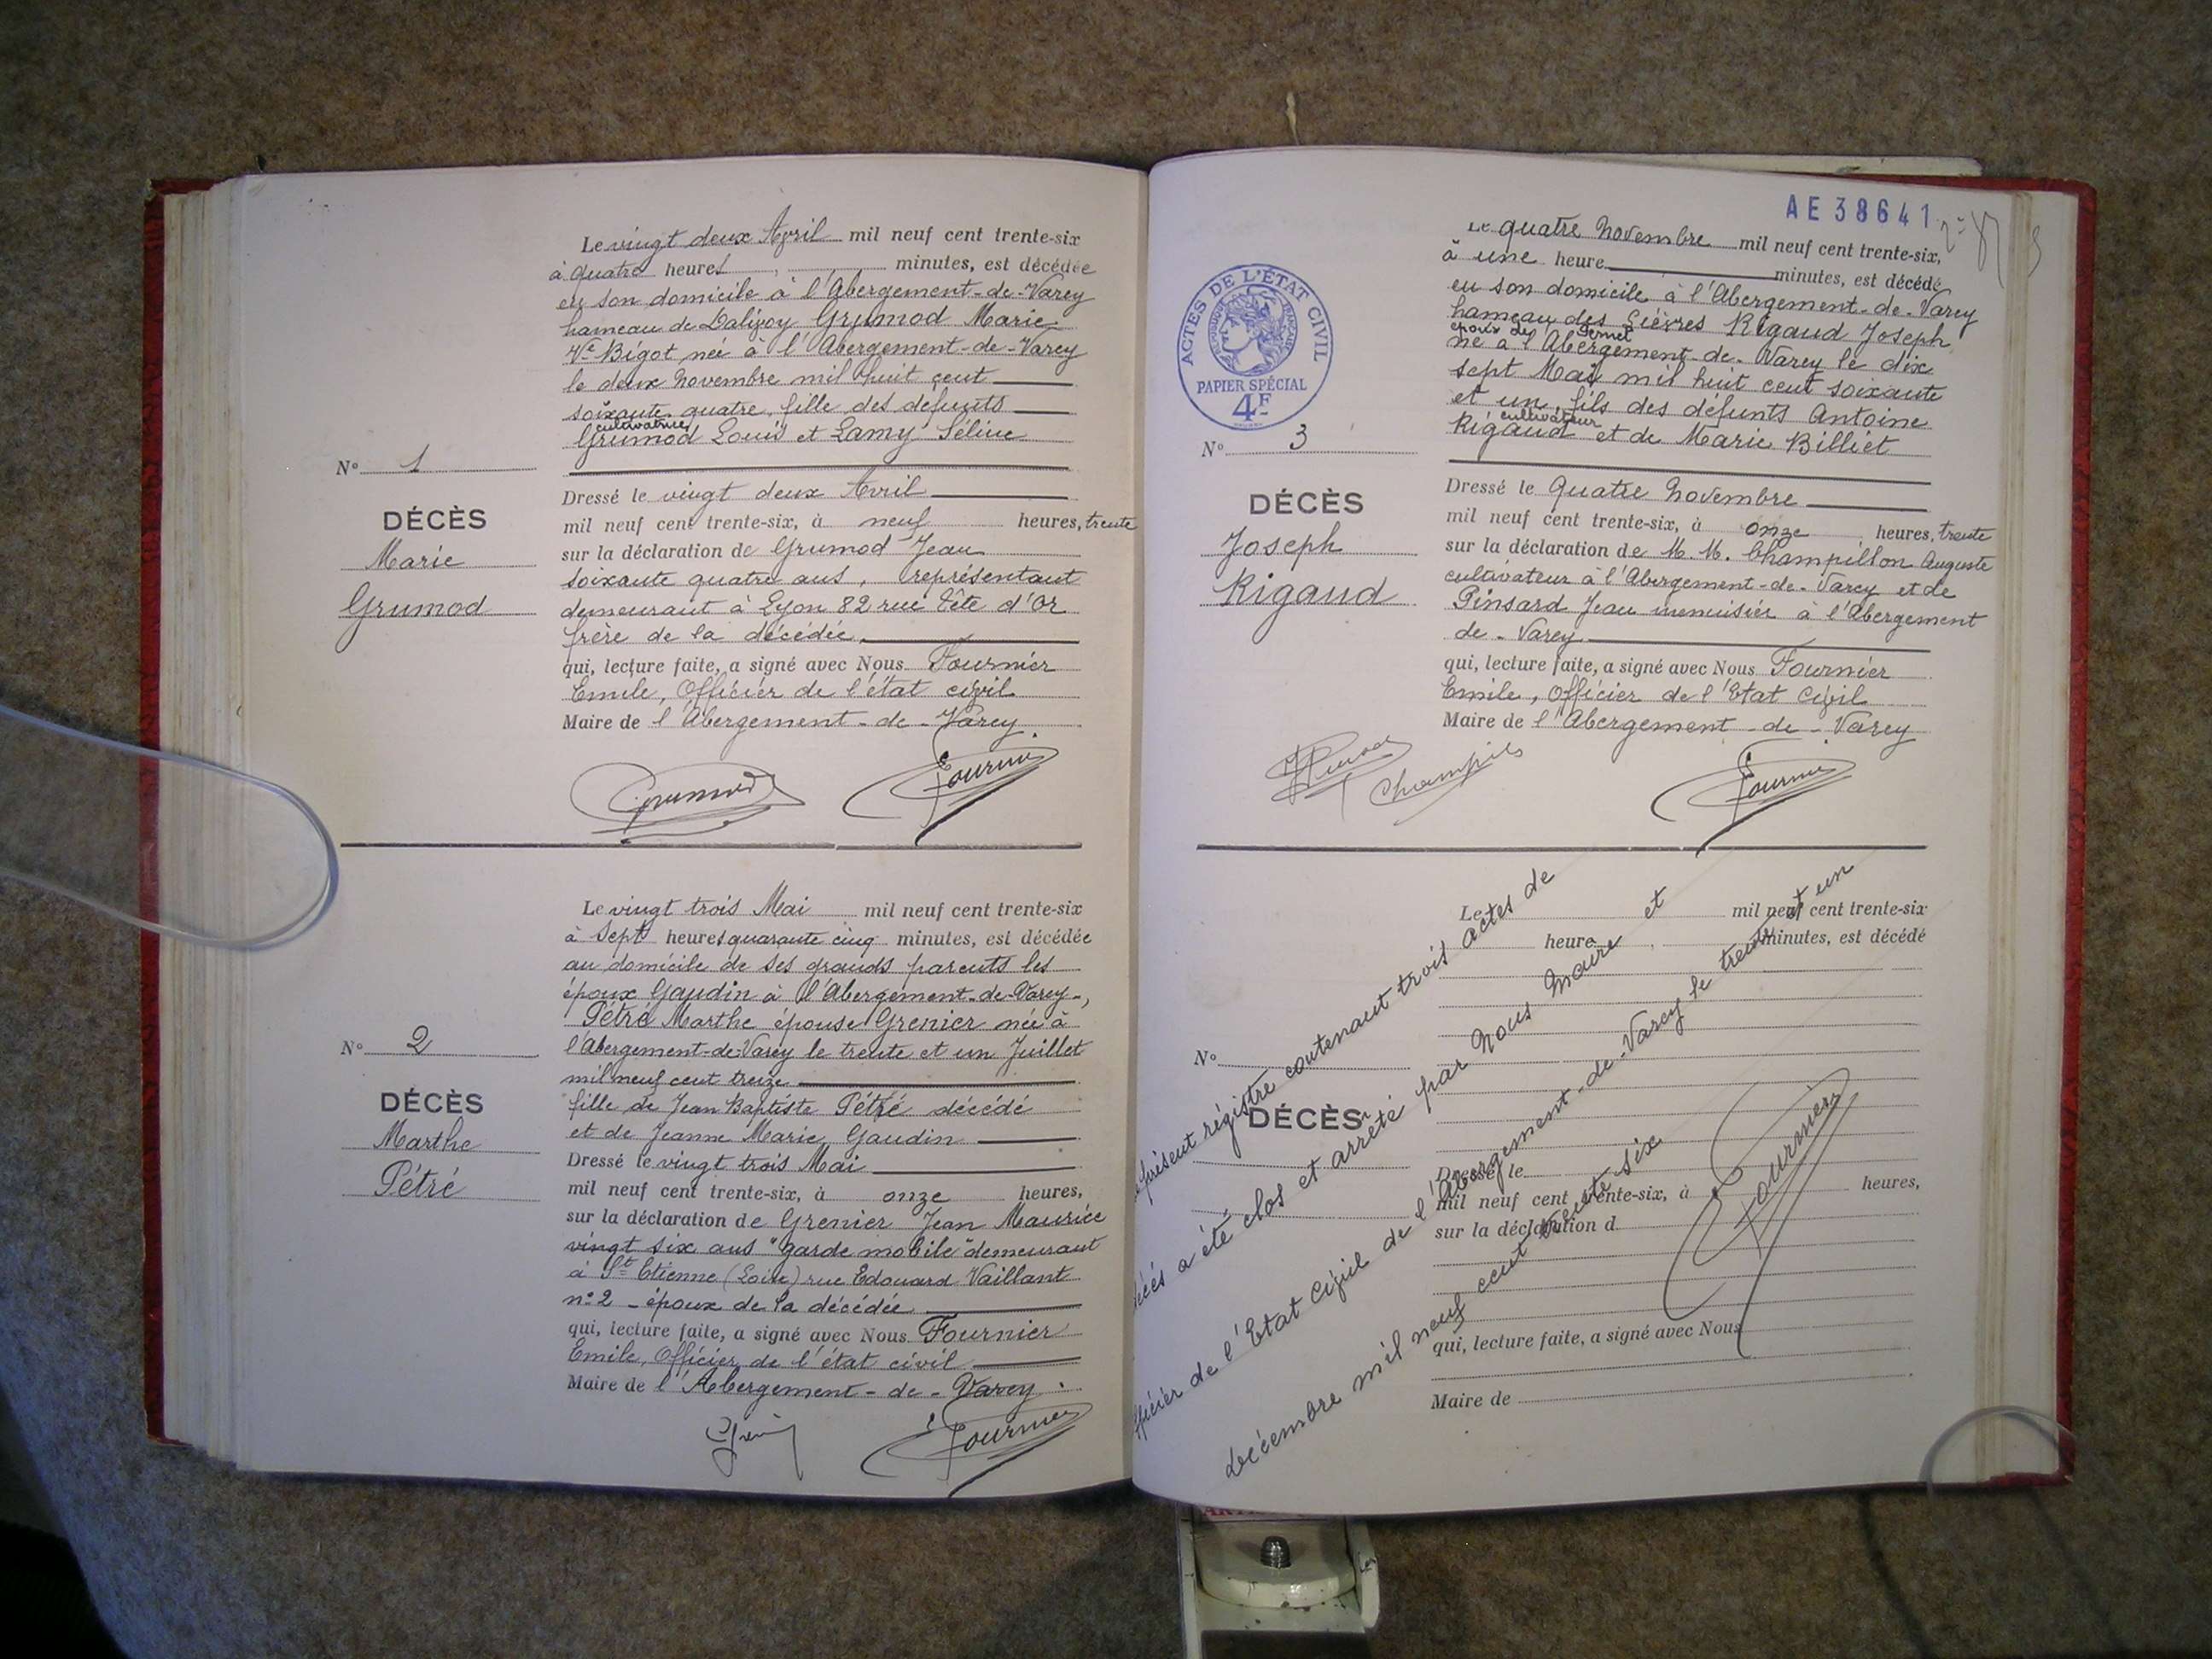 Le vingt deux Avril mil neuf cent trente-six
à quatre heures, minutes, est décédée
en son domicile à l'Abergement-de-Varey
hameau de Dalivoy Grumod Marie
Vve Bigot, née à l'Abergement-de-Varey
le deux Novembre mil huit cent
soixante quatre, fille des défunts
cultivatrice
Grumod Louis et Lamy Séline
N° 1
DÉCÈS
Marie
Grumod
Dressé le vingt deux Avril
mil neuf cent trente-six, à neuf heures, trente
sur la déclaration de Grumod Jean
soixante quatre ans, représentant
demeurant à Lyon 82 rue Tête d'Or
frère de la décédée.
qui, lecture faite, a signé avec Nous Fournier
Emile, Officier de l'état civil
Maire de l'Abergement-de-Varey.
Grumod Fournier
Le vingt trois Mai mil neuf cent trente-six
à sept heures quarante cinq minutes, est décédée
au domicile de ses grands parents les
époux Gaudin à l'Abergement-de-Varey-,
Pétré Marthe épouse Grenier née à
l'Abergement-de-Varey le trente et un Juillet
mil neuf cent treize
fille de Jean Baptiste Pétré décédé
et de Jeanne Marie Gaudin
N° 2
DÉCÈS
Marthe
Pétré
Dressé le vingt trois Mai
mil neuf cent trente-six, à onze heures,
sur la déclaration de Grenier Jean Maurice
vingt six ans "garde mobile" demeurant
à St Etienne (Loire) rue Edouard Vaillant
n° 2 - époux de la décédée
qui, lecture faite, a signé avec Nous Fournier
Emile, Officier de l'état civil
Maire de l'Abergement-de-Varey.
Fournier
AE 38641
ACTES DE L'ÉTAT CIVIL
RÉPUBLIQUE FRANÇAISE
PAPIER SPÉCIAL
4F
Le quatre Novembre mil neuf cent trente-six,
à une heure minutes, est décédé
en son domicile à l'Abergement-de-Varey
hameau des Lièvres Rigaud Joseph
époux de Fernet
né à l'Abergement-de-Varey le dix
sept Mai mil huit cent soixante
et un, fils des défunts Antoine
cultivateur
Rigaud et de Marie Billiet
N° 3
DÉCÈS
Joseph
Rigaud
Dressé le Quatre Novembre
mil neuf cent trente-six, à onze heures, trente
sur la déclaration de M.M. Champillon Auguste
cultivateur à l'Abergement-de-Varey et de
Pinsard Jean menuisier à l'Abergement
de-Varey
qui, lecture faite, a signé avec Nous Fournier
Emile, Officier de l'Etat Civil
Maire de l'Abergement-de-Varey
Fournier
Le mil neuf cent trente-six
heure, minutes, est décédé
N°
DÉCÈS
Dressé le
mil neuf cent trente-six, à heures,
sur la déclaration d
qui, lecture faite, a signé avec Nous
Maire de
présent régistre contenant trois actes de
décès a été clos et arrêté par Nous Maire et
officier de l'Etat Civil de l'Abergement-de-Varey le trente et un
décembre mil neuf cent trente six
Fournier